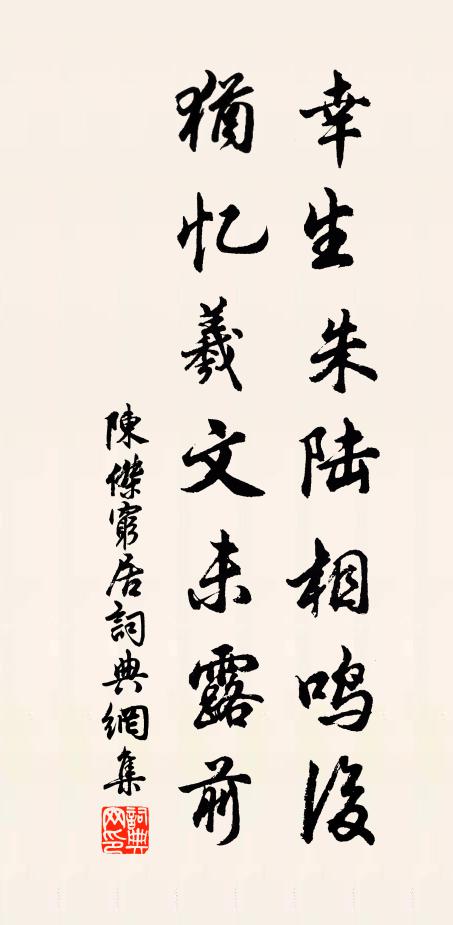 幸生朱陆相鸣后
犹忆羲文未露前
陳傑窮居詞典網集
詞典网印